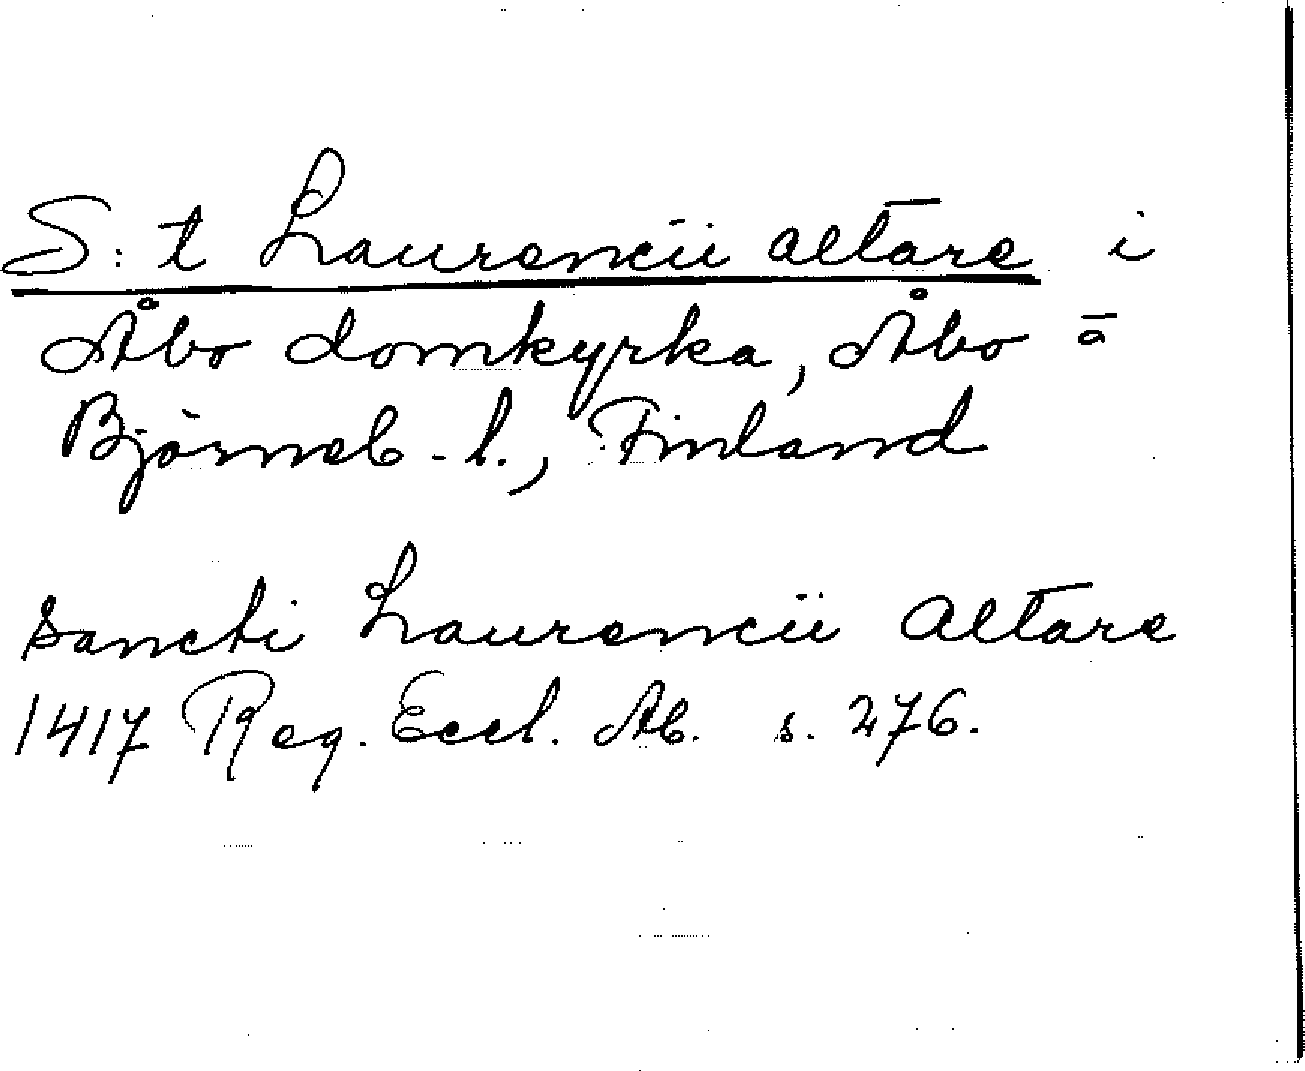 S:t Laurencii altare i
Åbo domkyrka, Åbo o
Björneb. l., Finland
sancti Laurencii Altare
1417 Reg. Eccl. Ab. s. 276.